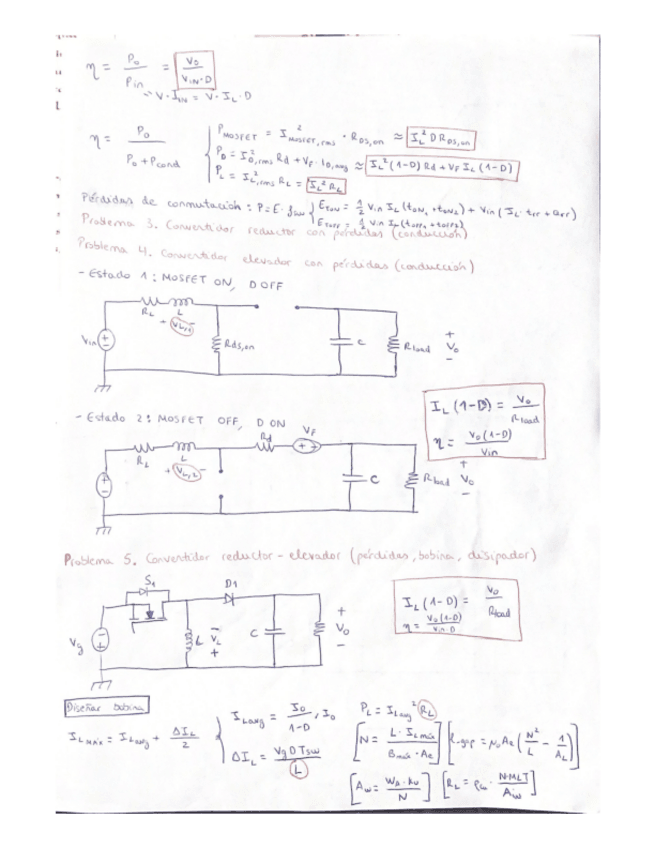 η = Po / Pin = Vo / (Vin·D)
~ V·Iin = V·IL·D
η = Po / (Po + Pcond)
PMOSFET = I²MOSFET,rms · RDS,on ≈ IL² D RDS,on
PD = I²D,rms Rd + VF · ID,avg ≈ IL² (1-D) Rd + VF IL (1-D)
PL = I²L,rms RL = IL² RL
Pérdidas de conmutación: P = E·fsw
ETON = 1/2 Vin IL (tON1 + tON2) + Vin (IL · trr + Qrr)
ETOFF = 1/2 Vin IL (tOFF1 + tOFF2)
Problema 3. Convertidor reductor con pérdidas (conducción)
Problema 4. Convertidor elevador con pérdidas (conducción)
- Estado 1: MOSFET ON, D OFF
RL L
+ VL,1 -
Vin Rds,on C Rload + Vo -
- Estado 2: MOSFET OFF, D ON
RL L Rd VF
+ VL,2 -
C Rload + Vo -
IL (1-D) = Vo / Rload
η = Vo (1-D) / Vin
Problema 5. Convertidor reductor - elevador (pérdidas, bobina, disipador)
S1 D1
Vg L - VL + C + Vo -
IL (1-D) = Vo / Rload
η = Vo (1-D) / Vin·D
Diseñar bobina
ILmáx = ILavg + ΔIL / 2
ILavg = Io / (1-D), Io
ΔIL = Vg D Tsw / L
PL = ILavg² RL
[N = L · ILmáx / (Bmáx · Ae)] [lgap = μo Ae (N²/L - 1/AL)]
[Aw = WA · Ku / N] [RL = ρcu · N·MLT / Aw]